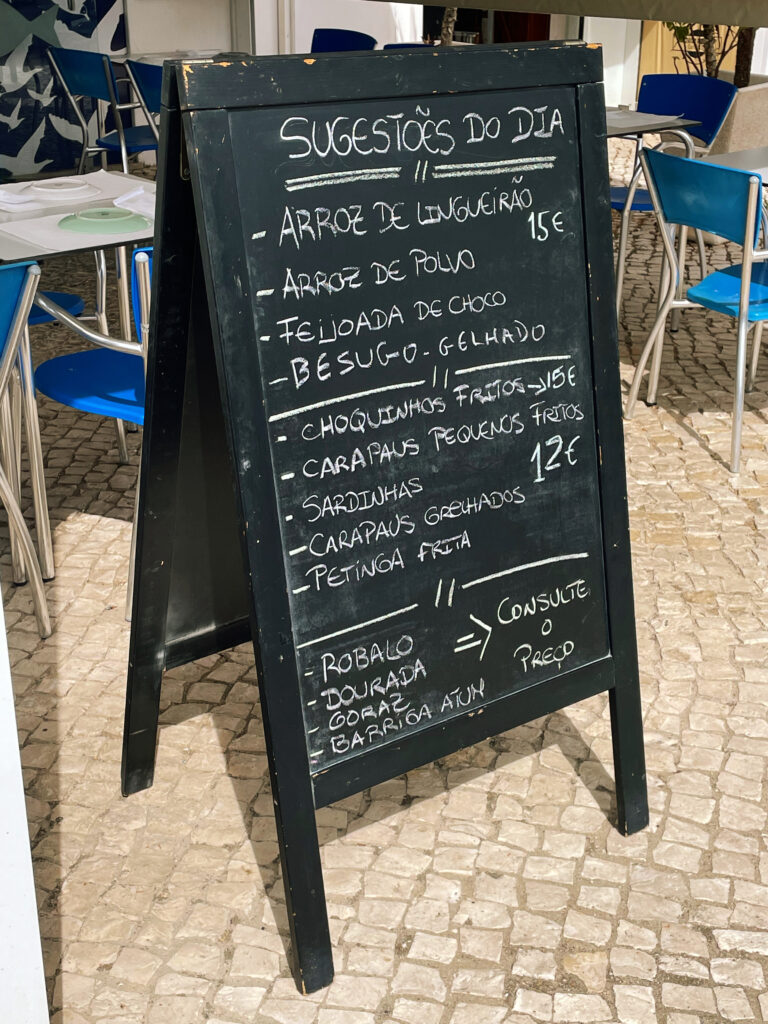 SUGESTÕES DO DIA
//
- ARROZ DE LINGUEIRÃO
15€
- ARROZ DE POLVO
- FEIJOADA DE CHOCO
- BESUGO - GELHADO
//
- CHOQUINHOS FRITOS → 15€
- CARAPAUS PEQUENOS FRITOS
- SARDINHAS 12€
- CARAPAUS GRELHADOS
- PETINGA FRITA
//
- ROBALO
- DOURADA
- GORAZ
- BARRIGA ATUM
⇒ CONSULTE
O
PREÇO